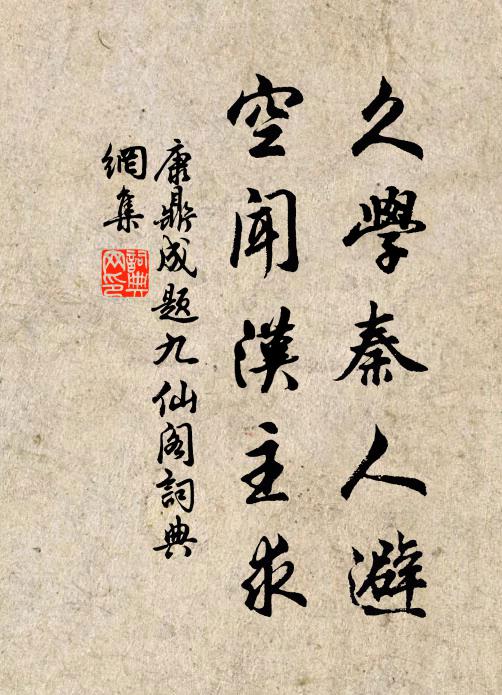 久學秦人避
空聞漢主求
康鼎成題九仙閣詞典
網集
詞典
网印